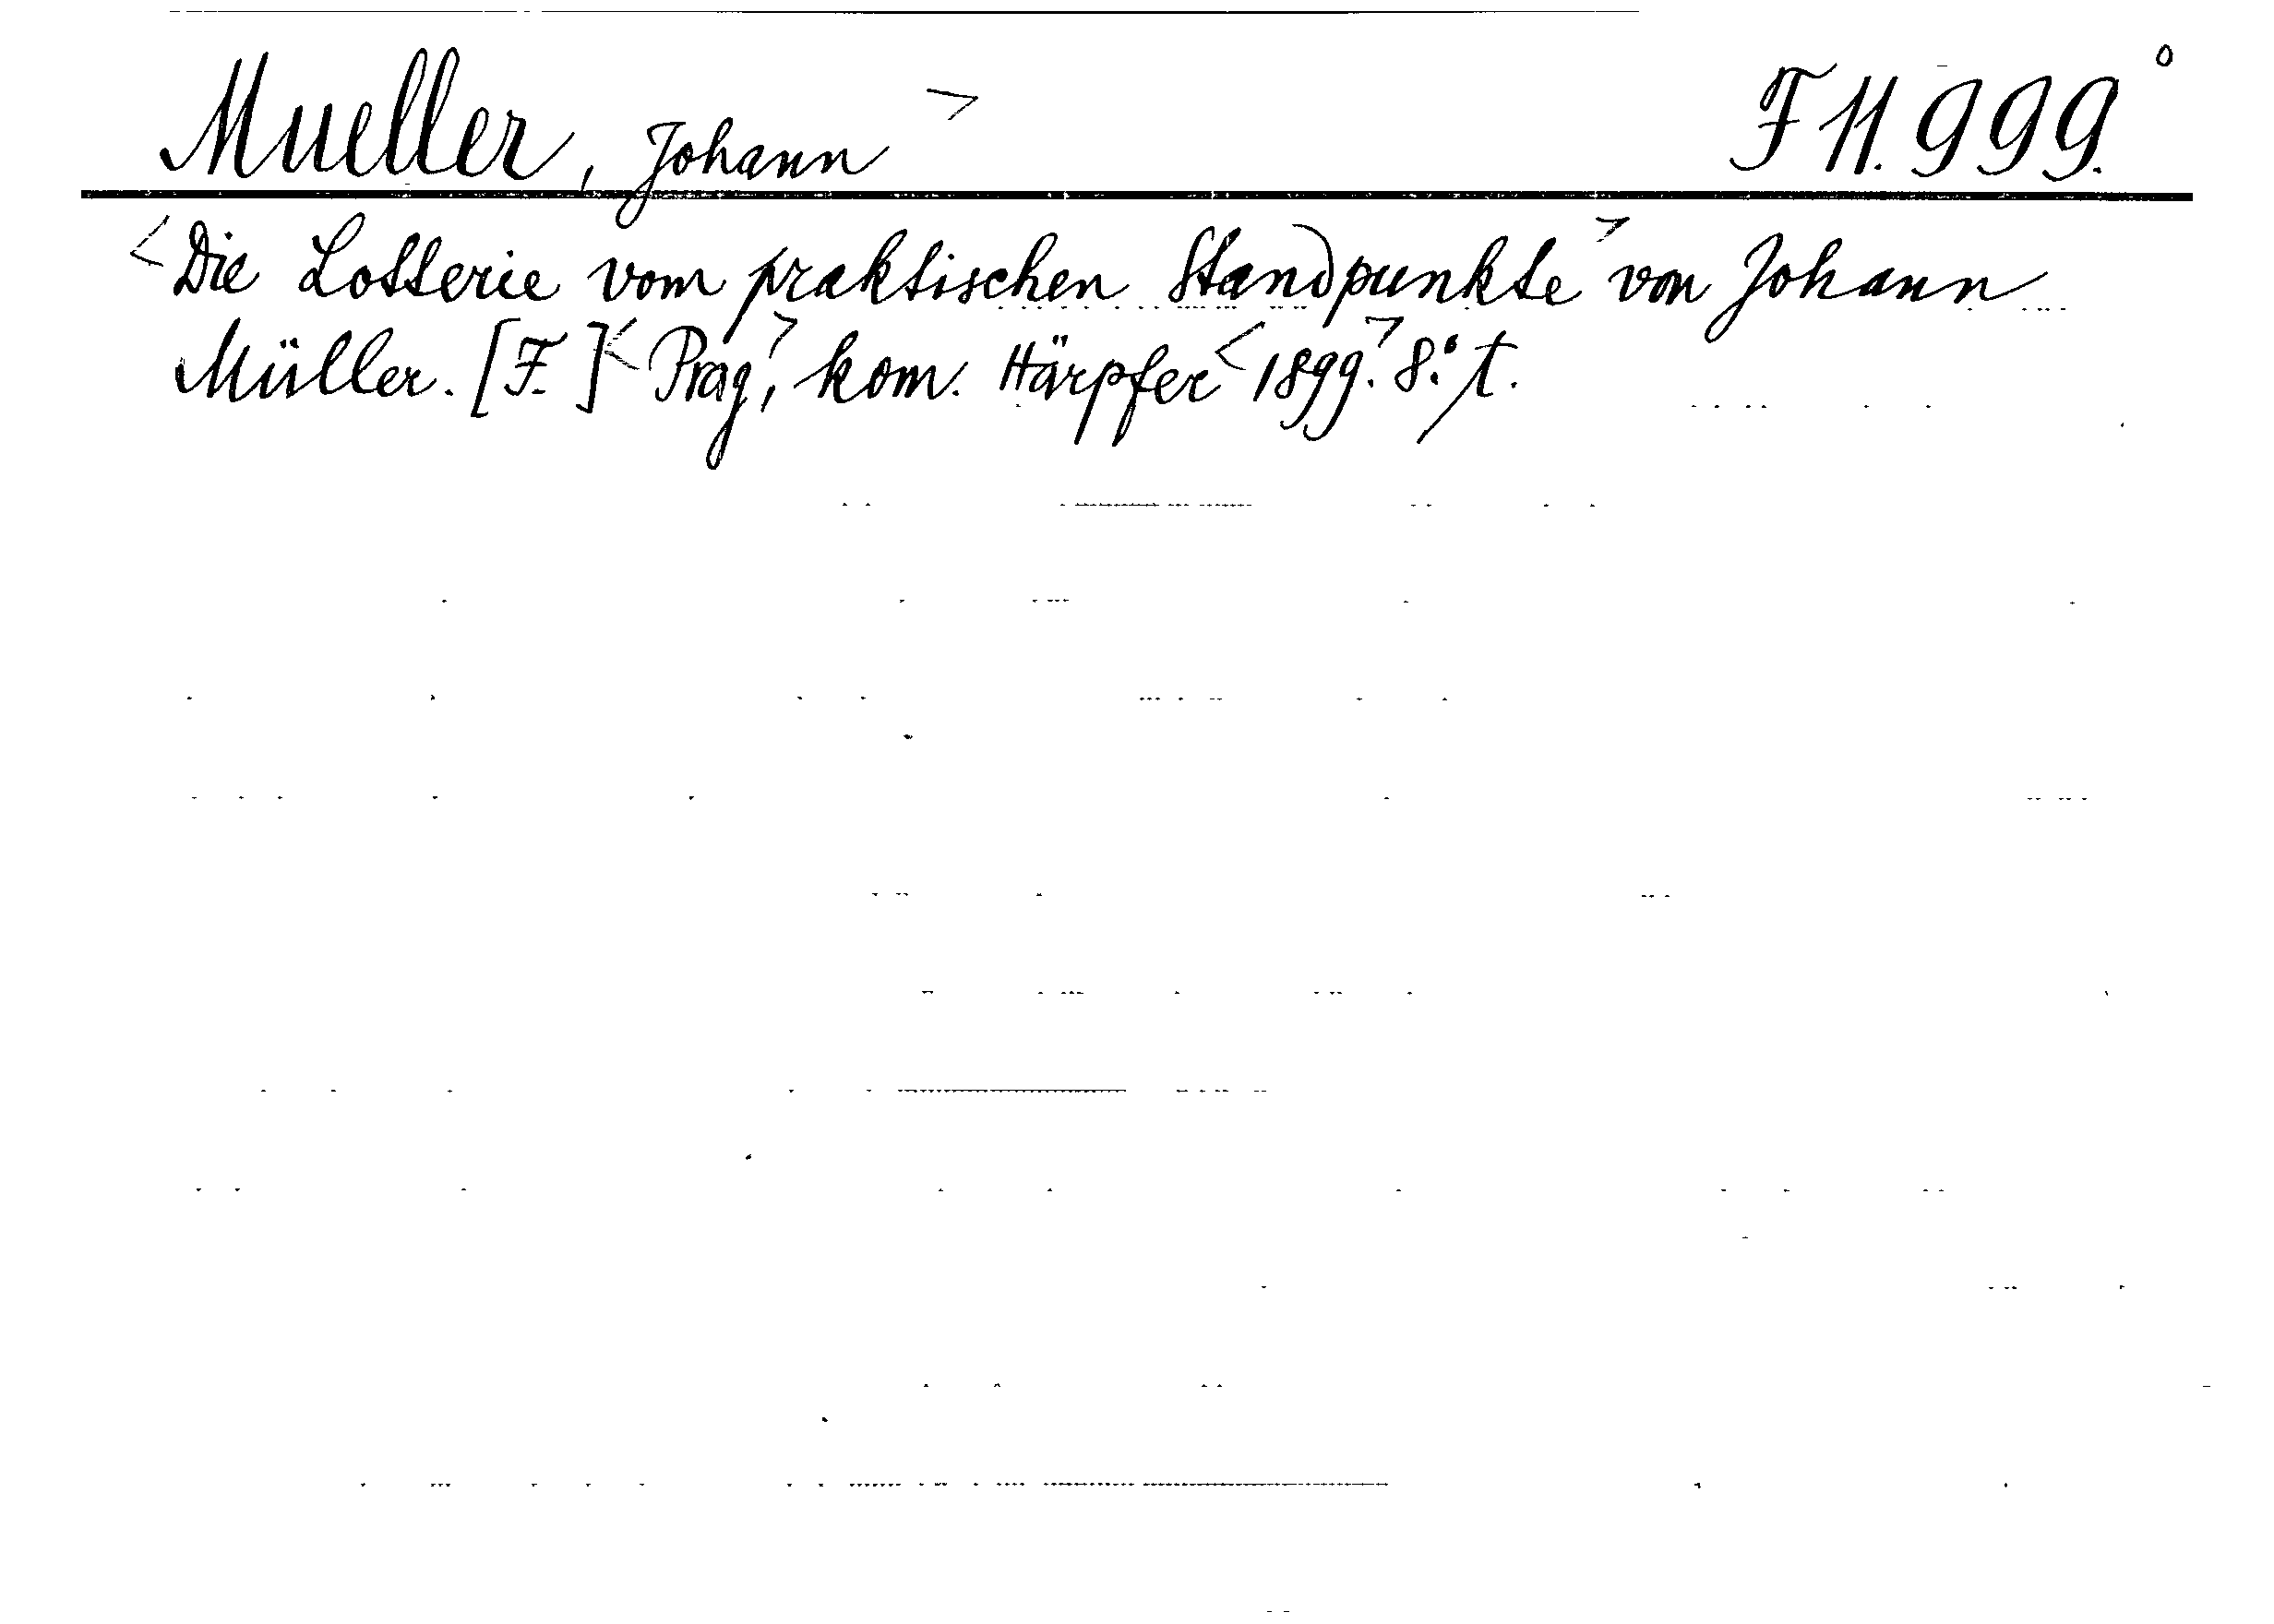 Mueller, Johann > F 11.999.°
<Die Lotterie vom praktischen Standpunkte> von Johann
Müller. [F.] <Prag,> kom. Härpfer <1899.> 8.° t.